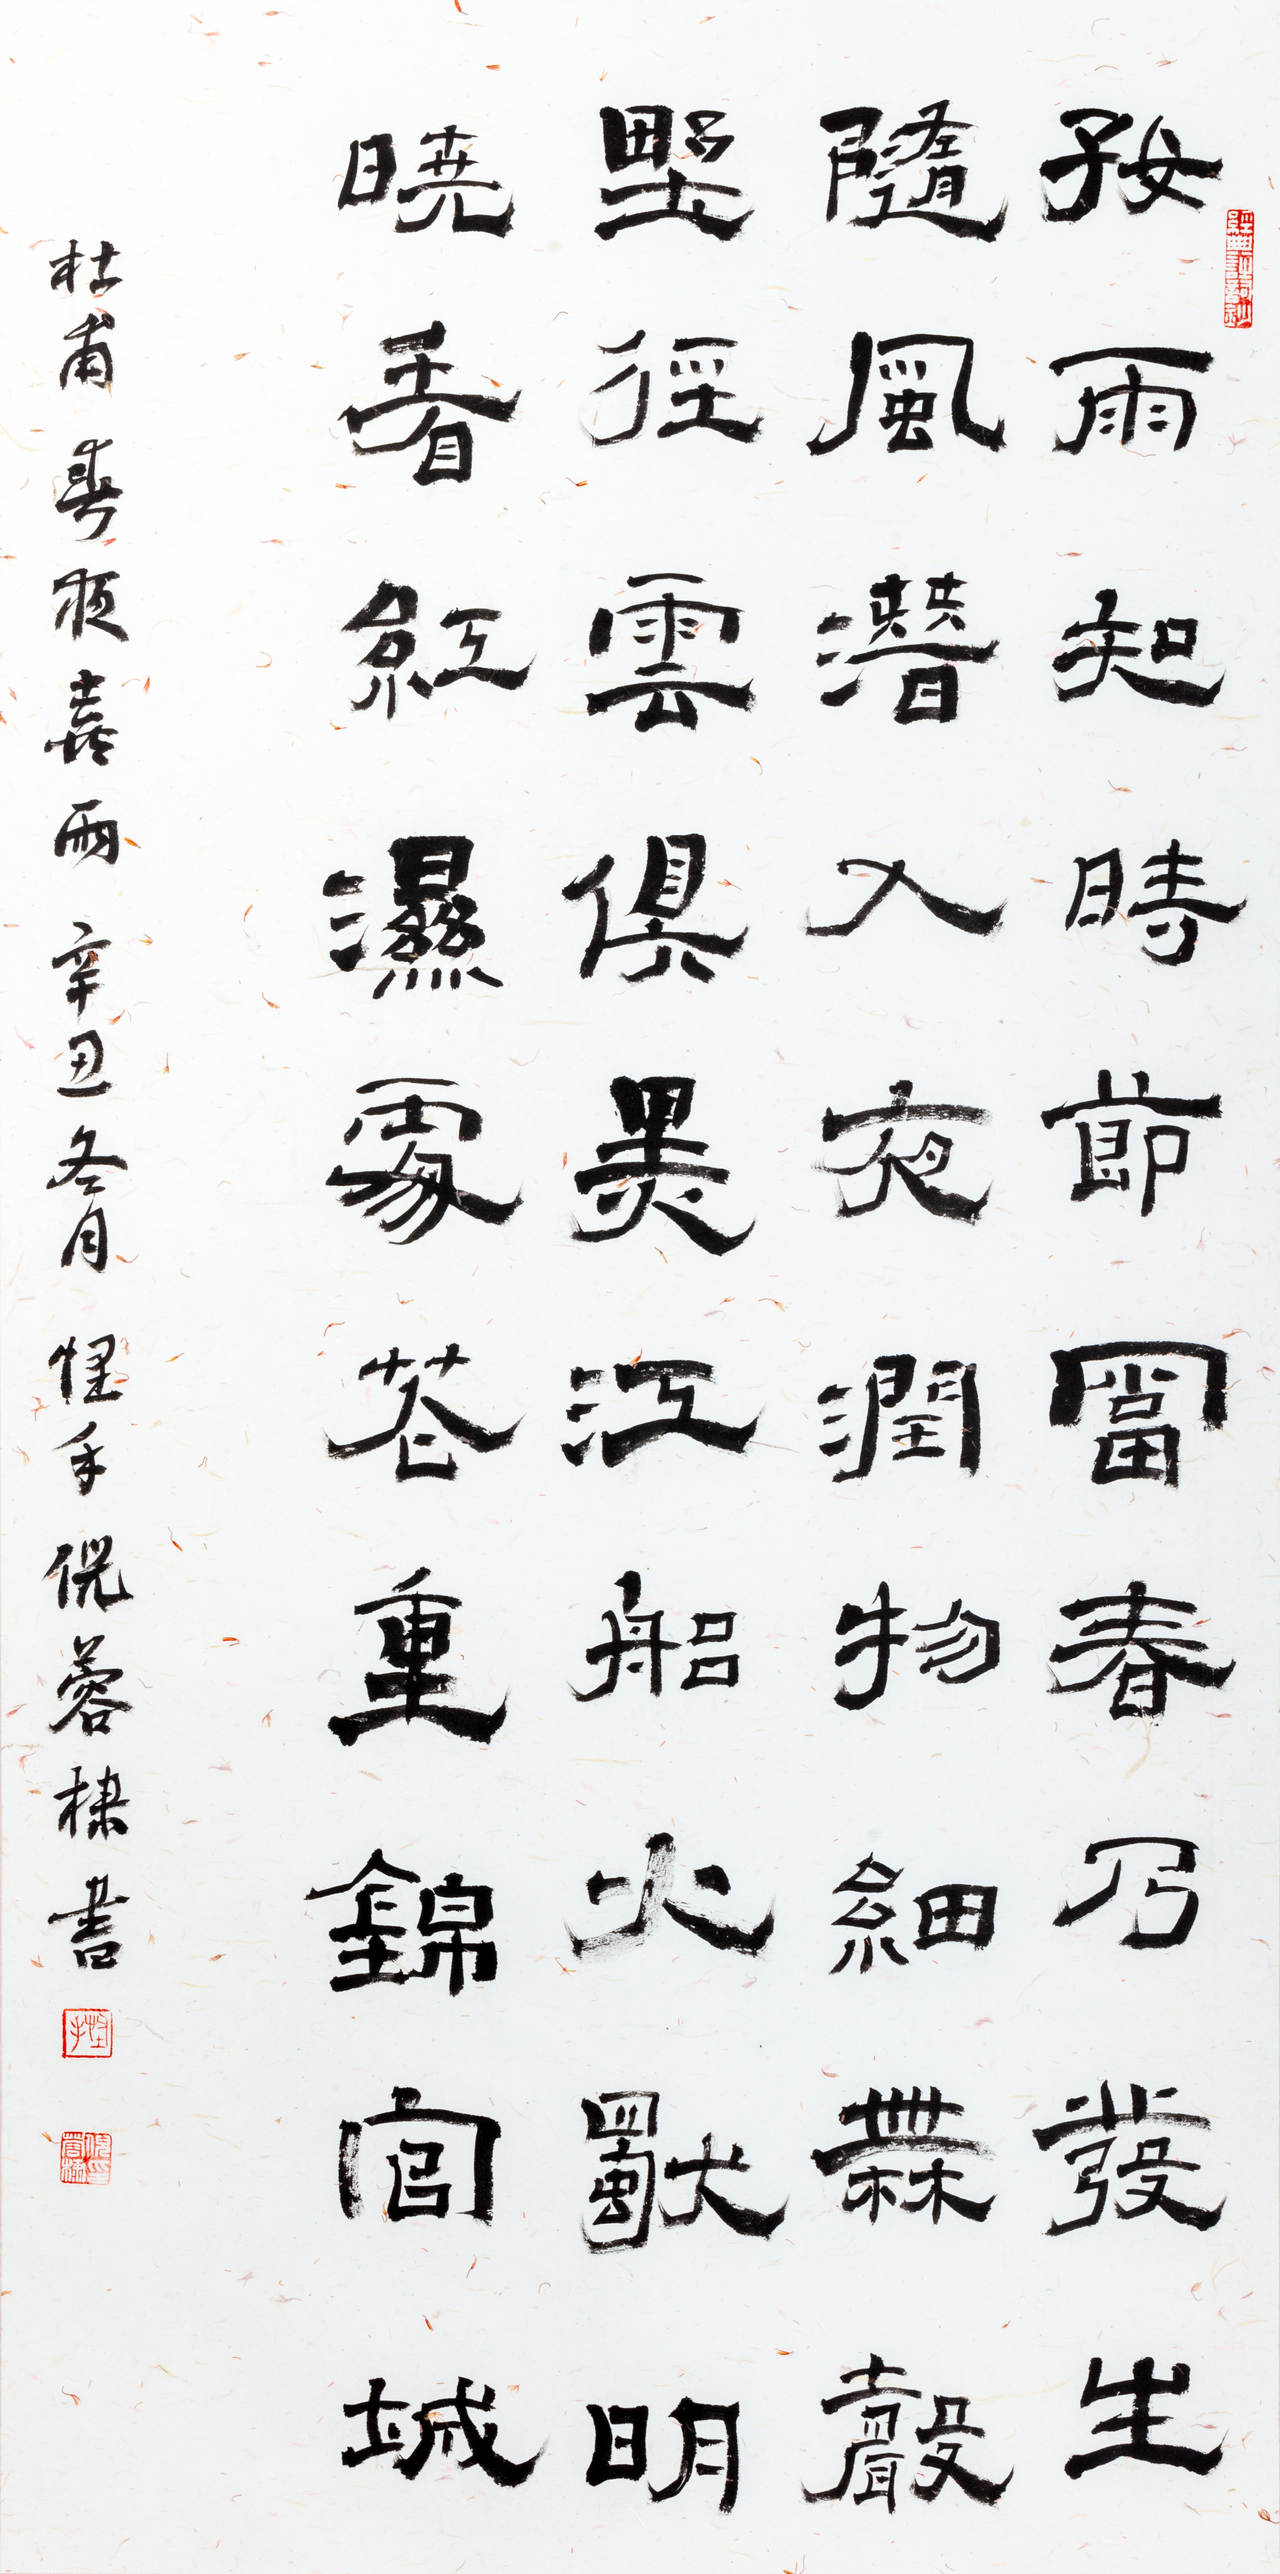 好雨知時節當春乃發生
隨風潛入夜潤物細無聲
野徑雲俱黑江船火獨明
曉看紅濕處花重錦官城
杜甫春夜喜雨 辛丑冬月 手倪蓉棣書
倪蓉棣印